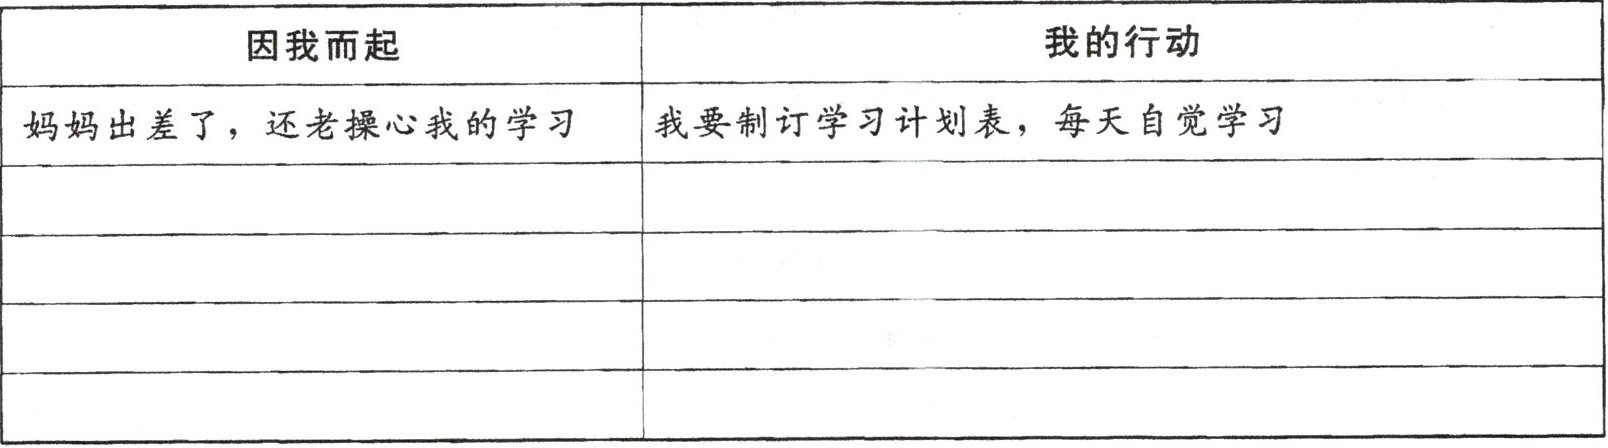 因我而起 我的行动
妈妈出差了，还老操心我的学习 我要制订学习计划表，每天自觉学习